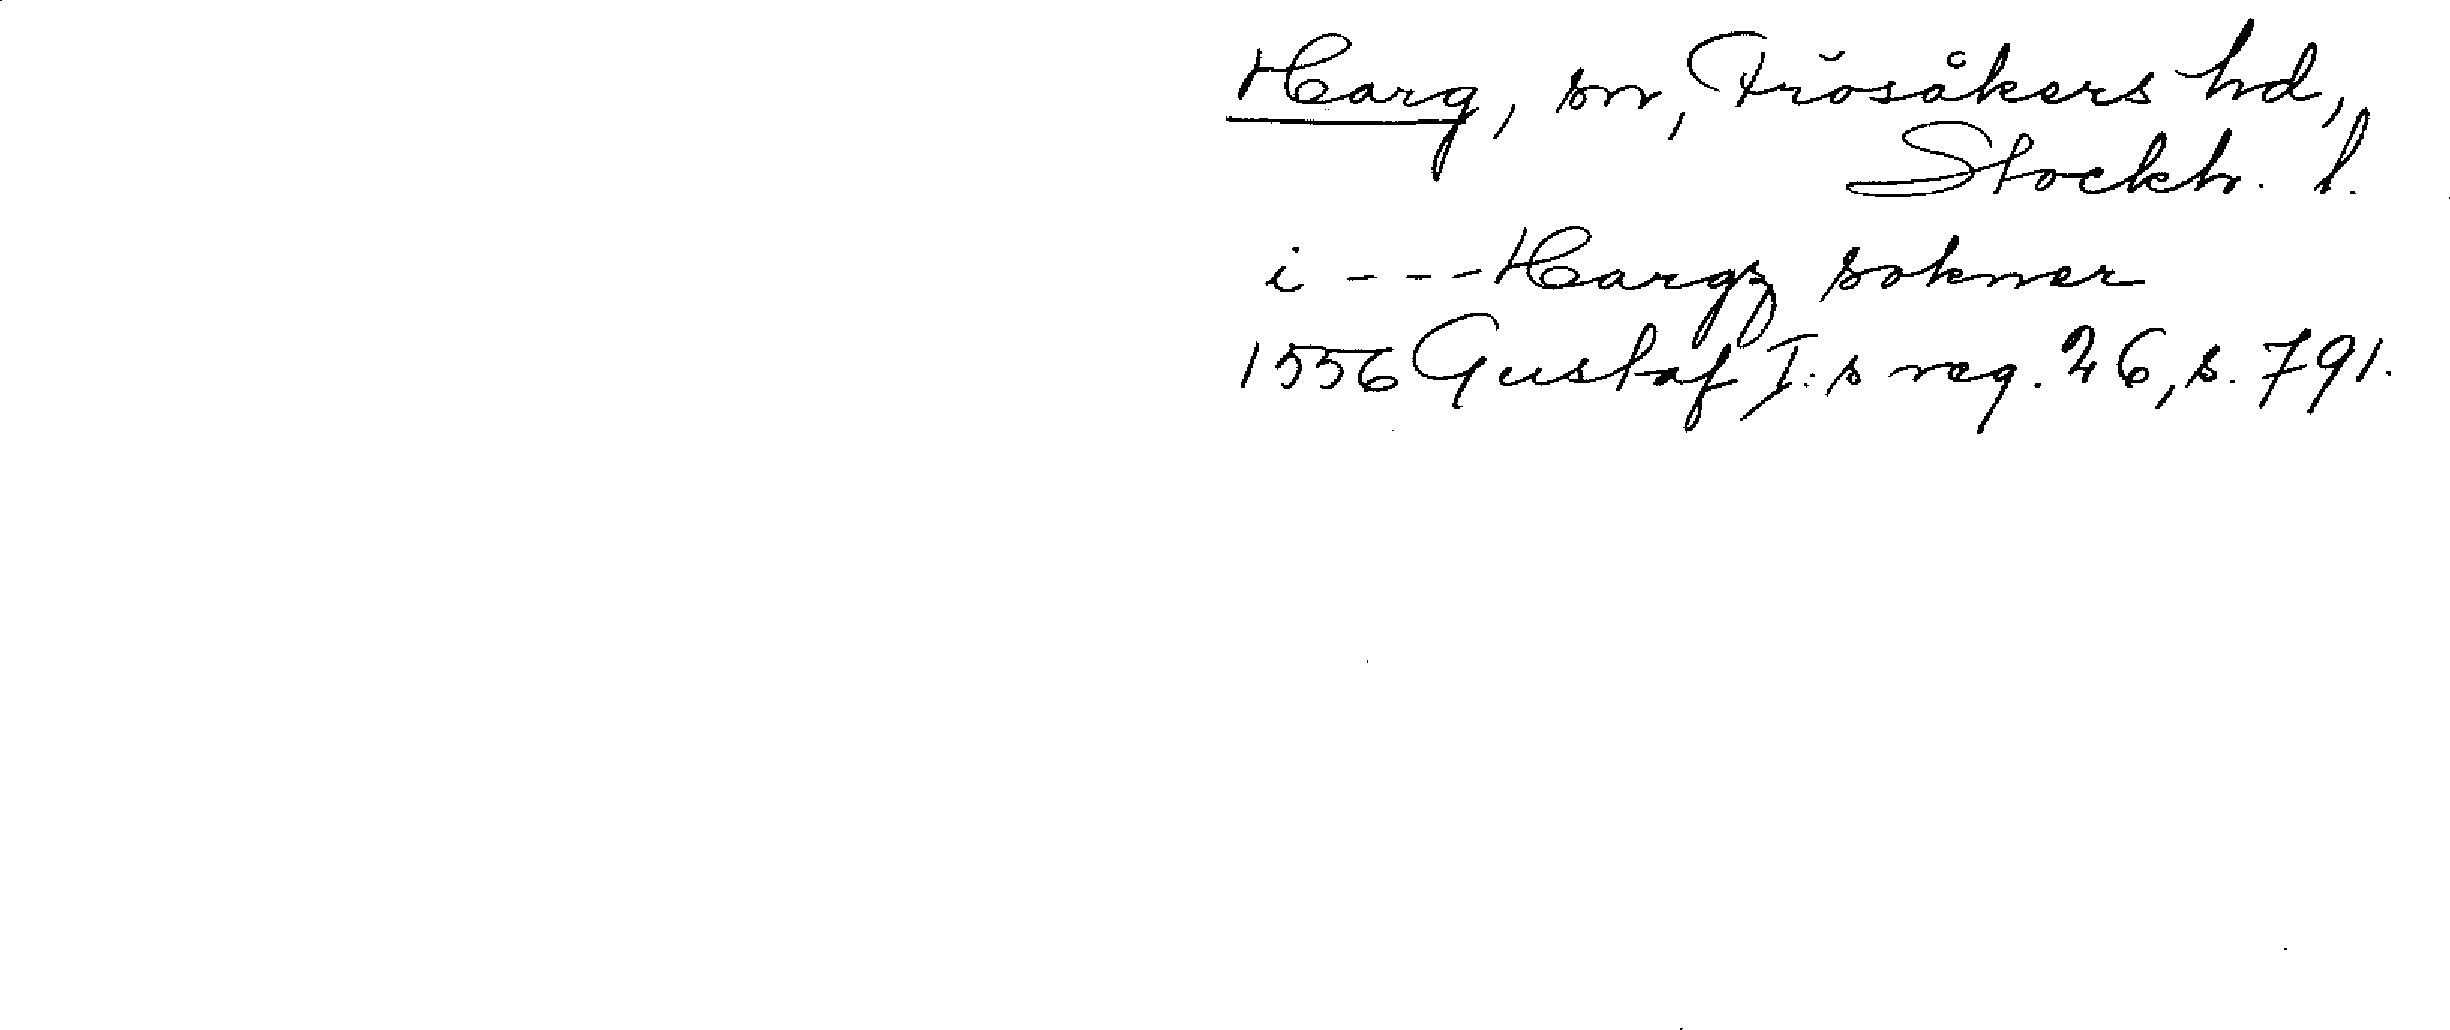 Harg, sn, Frösåkers hd,
Stockh. l.
i - - - Hargz sokner
1556 Gustaf I:s reg. 26, s. 791.